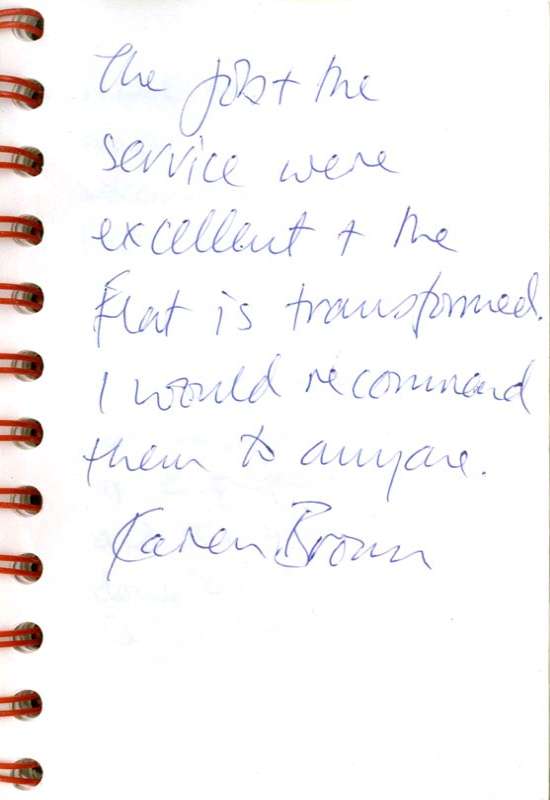 The job + the
service were
excellent + the
Flat is transformed.
I would recommend
them to anyone.
Karen Brown